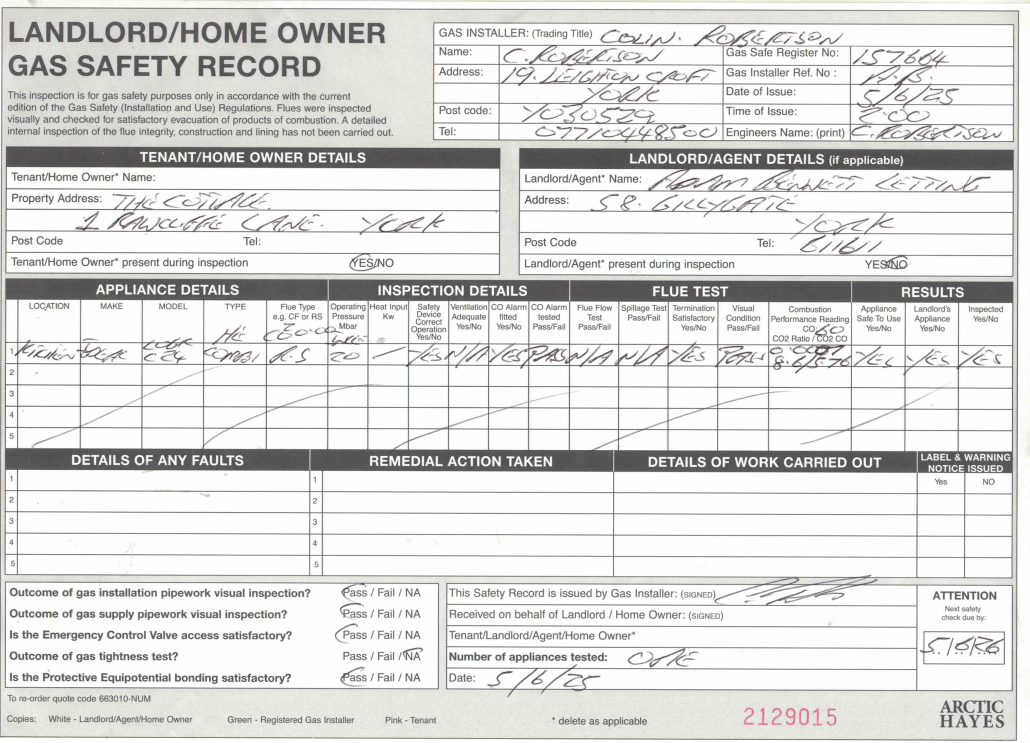 LANDLORD/HOME OWNER
GAS SAFETY RECORD
This inspection is for gas safety purposes only in accordance with the current
edition of the Gas Safety (Installation and Use) Regulations. Flues were inspected
visually and checked for satisfactory evacuation of products of combustion. A detailed
internal inspection of the flue integrity, construction and lining has not been carried out.
GAS INSTALLER: (Trading Title) COLIN. ROBERTSON
Name: C. ROBERTSON
Gas Safe Register No: 157664
Address: 19. LEIGHTON CROFT
Gas Installer Ref. No :
YORK
Date of Issue: 5/6/25
Post code: YO30529
Time of Issue: 2.00
Tel: 07710448500
Engineers Name: (print) C. ROBERTSON
TENANT/HOME OWNER DETAILS
Tenant/Home Owner* Name:
Property Address: THE COTTAGE.
1 RAWCLIFFE LANE. YORK
Post Code Tel:
Tenant/Home Owner* present during inspection YES/NO
LANDLORD/AGENT DETAILS (if applicable)
Landlord/Agent* Name: ADAM BENNETT LETTING
Address: 58. GILLYGATE
YORK
Post Code Tel: 611611
Landlord/Agent* present during inspection YES/NO
APPLIANCE DETAILS INSPECTION DETAILS FLUE TEST RESULTS
LOCATION MAKE MODEL TYPE Flue Type e.g. CF or RS Operating Pressure Mbar Heat Input Kw Safety Device Correct Operation Yes/No Ventilation Adequate Yes/No CO Alarm fitted Yes/No CO Alarm tested Pass/Fail Flue Flow Test Pass/Fail Spillage Test Pass/Fail Termination Satisfactory Yes/No Visual Condition Pass/Fail Combustion Performance Reading CO CO2 Ratio / CO2 CO Appliance Safe To Use Yes/No Landlord's Appliance Yes/No Inspected Yes/No
LOGIC HE
1 KITCHEN IDEAL C24 COMBI R.S 20 – YES N/A YES PASS N/A N/A YES PASS YES YES YES
2
3
4
5
DETAILS OF ANY FAULTS REMEDIAL ACTION TAKEN DETAILS OF WORK CARRIED OUT LABEL & WARNING NOTICE ISSUED
Yes NO
1 1
2 2
3 3
4 4
5 5
Outcome of gas installation pipework visual inspection? Pass / Fail / NA
Outcome of gas supply pipework visual inspection? Pass / Fail / NA
Is the Emergency Control Valve access satisfactory? Pass / Fail / NA
Outcome of gas tightness test? Pass / Fail / NA
Is the Protective Equipotential bonding satisfactory? Pass / Fail / NA
This Safety Record is issued by Gas Installer: (SIGNED)
Received on behalf of Landlord / Home Owner: (SIGNED)
Tenant/Landlord/Agent/Home Owner*
Number of appliances tested: ONE
Date: 5/6/25
ATTENTION
Next safety
check due by:
5/6/26
To re-order quote code 663010-NUM
Copies: White - Landlord/Agent/Home Owner Green - Registered Gas Installer Pink - Tenant
* delete as applicable
2129015
ARCTIC
HAYES